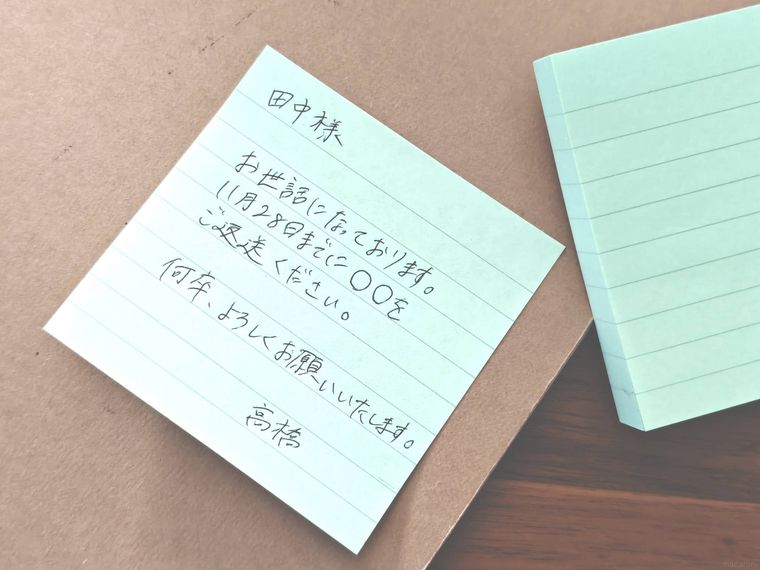 田中様
お世話になっております。
11月28日までに○○を
ご返送ください。
何卒、よろしくお願いいたします。
高橋
macaroni